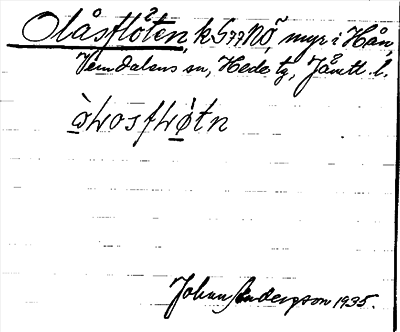 Olåsflåten, k G 77 NÖ, myr i Hån,
Vemdalens sn, Hede tg, Jämtl. l.
Johan Anderson 1935.